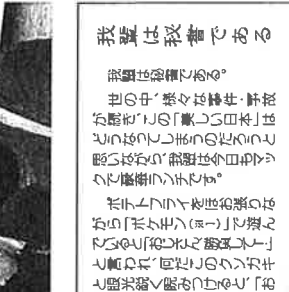 我輩は秘書である
我輩は秘書である。
世の中、様々な事件・事故
が続き、この「美しい日本」は
どうなってしまうのだろうと
思いながら、我輩は今日もマッ
クで昼食ランチです。
ポテトフライをほお張りな
がら「ポケモン(※1)」で遊ん
でいると「おじさん、
と言われ、何だこのクソガキ
と眼光鋭く睨みつけると、「お